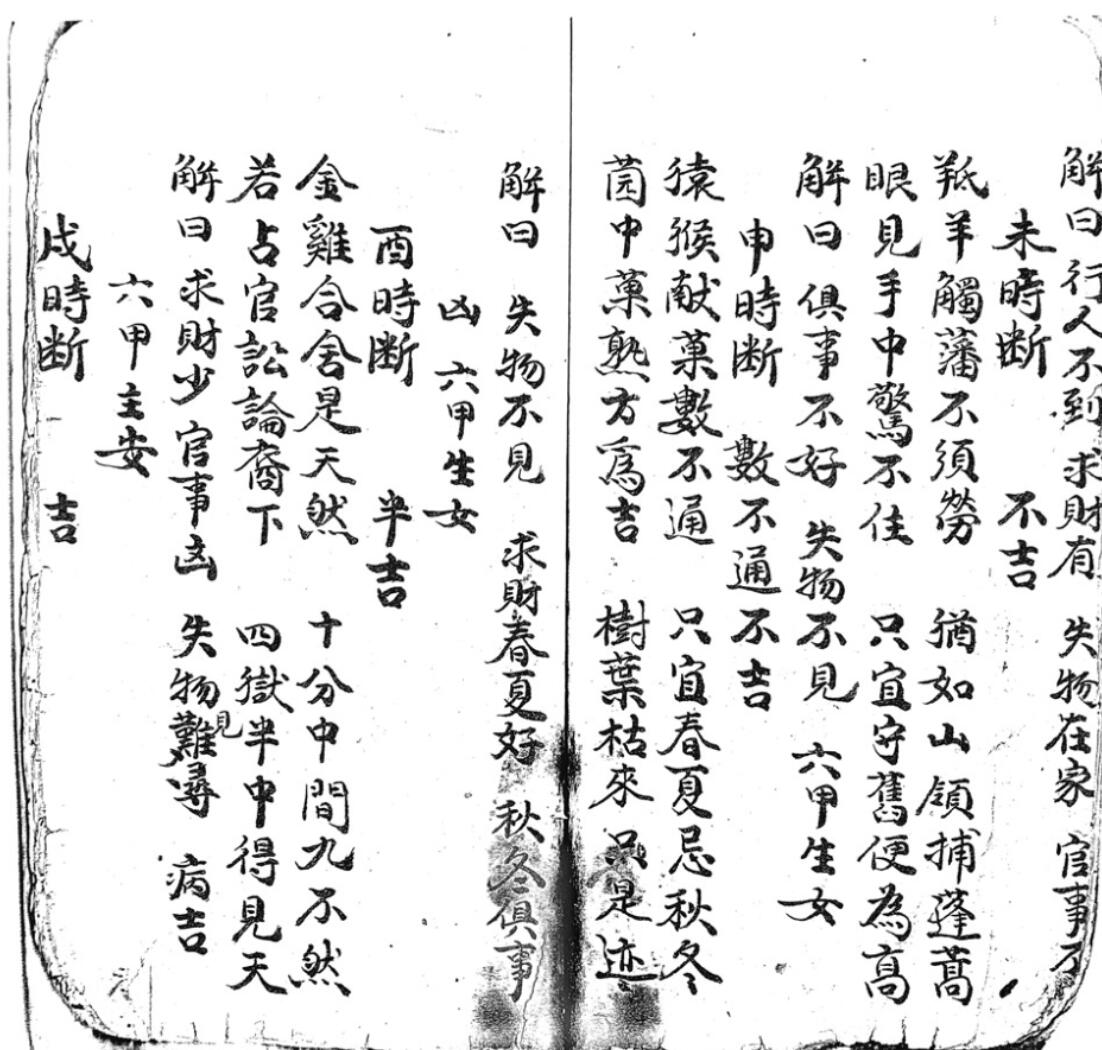 解曰行人不到 求財有 失物在家 官事不
未時断 不吉
羝羊觸藩不須勞 猶如山領捕蓬蒿
眼見手中驚不住 只宜守舊便為高
解曰俱事不好 失物不見 六甲生女
申時断 數不通不吉
猿猴献菓數不通 只宜春夏忌秋冬
园中菓熟方爲吉 樹葉枯來只是迹
解曰 失物不見 求財春夏好 秋冬俱事
凶 六甲生女
酉時断 半吉
金雞合舍是天然 十分中間九不然
若占官訟論裔下 四獄半中得見天
解曰求財少官事凶 失物難見尋 病吉
六甲主安
戌時断 吉